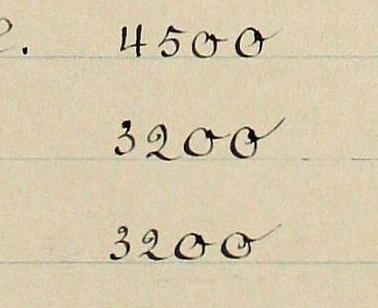 . 4500
3200
3200